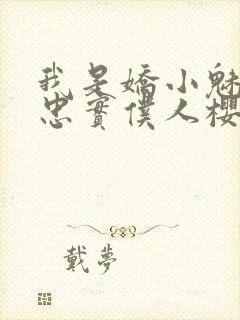 我是嬌小魅
忠實僕人櫻
戴夢